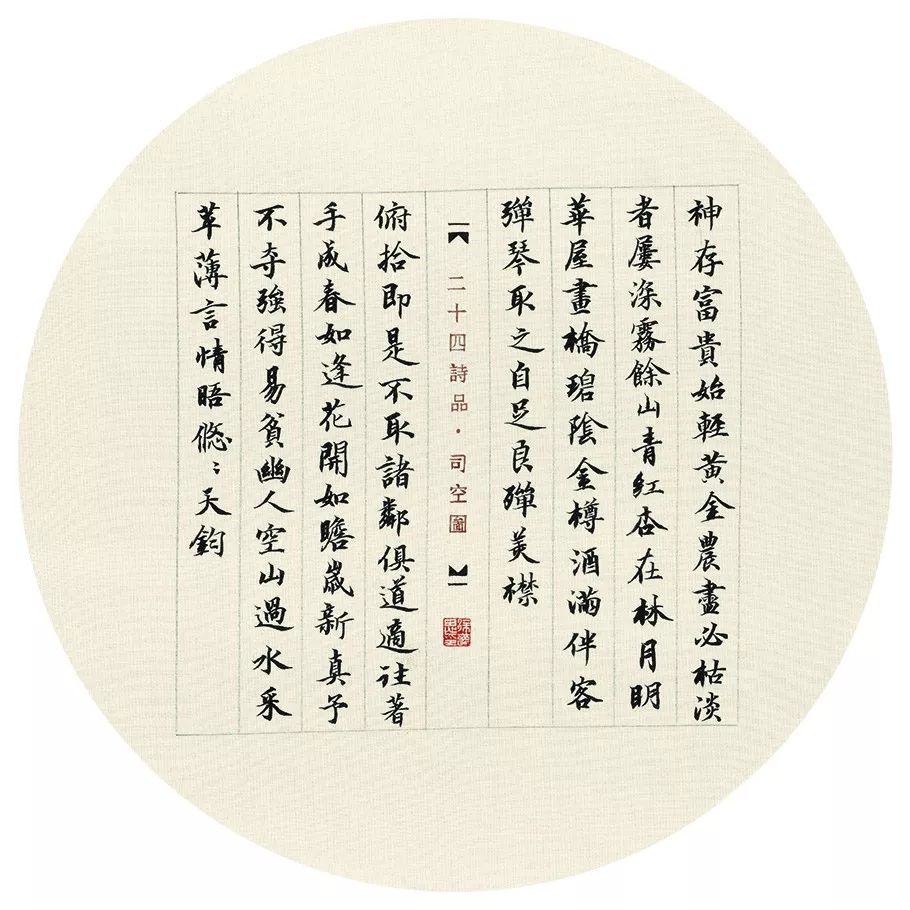 神存富貴始輕黃金農盡必枯淡
者屢深霧餘山青紅杏在林月明
華屋畫橋碧陰金樽酒滿伴客
彈琴取之自足良殫美襟
【二十四詩品·司空圖】
俯拾即是不取諸鄰俱道適往著
手成春如逢花開如瞻歲新真予
不奪強得易貧幽人空山過水采
苹薄言情晤悠〻天鈞